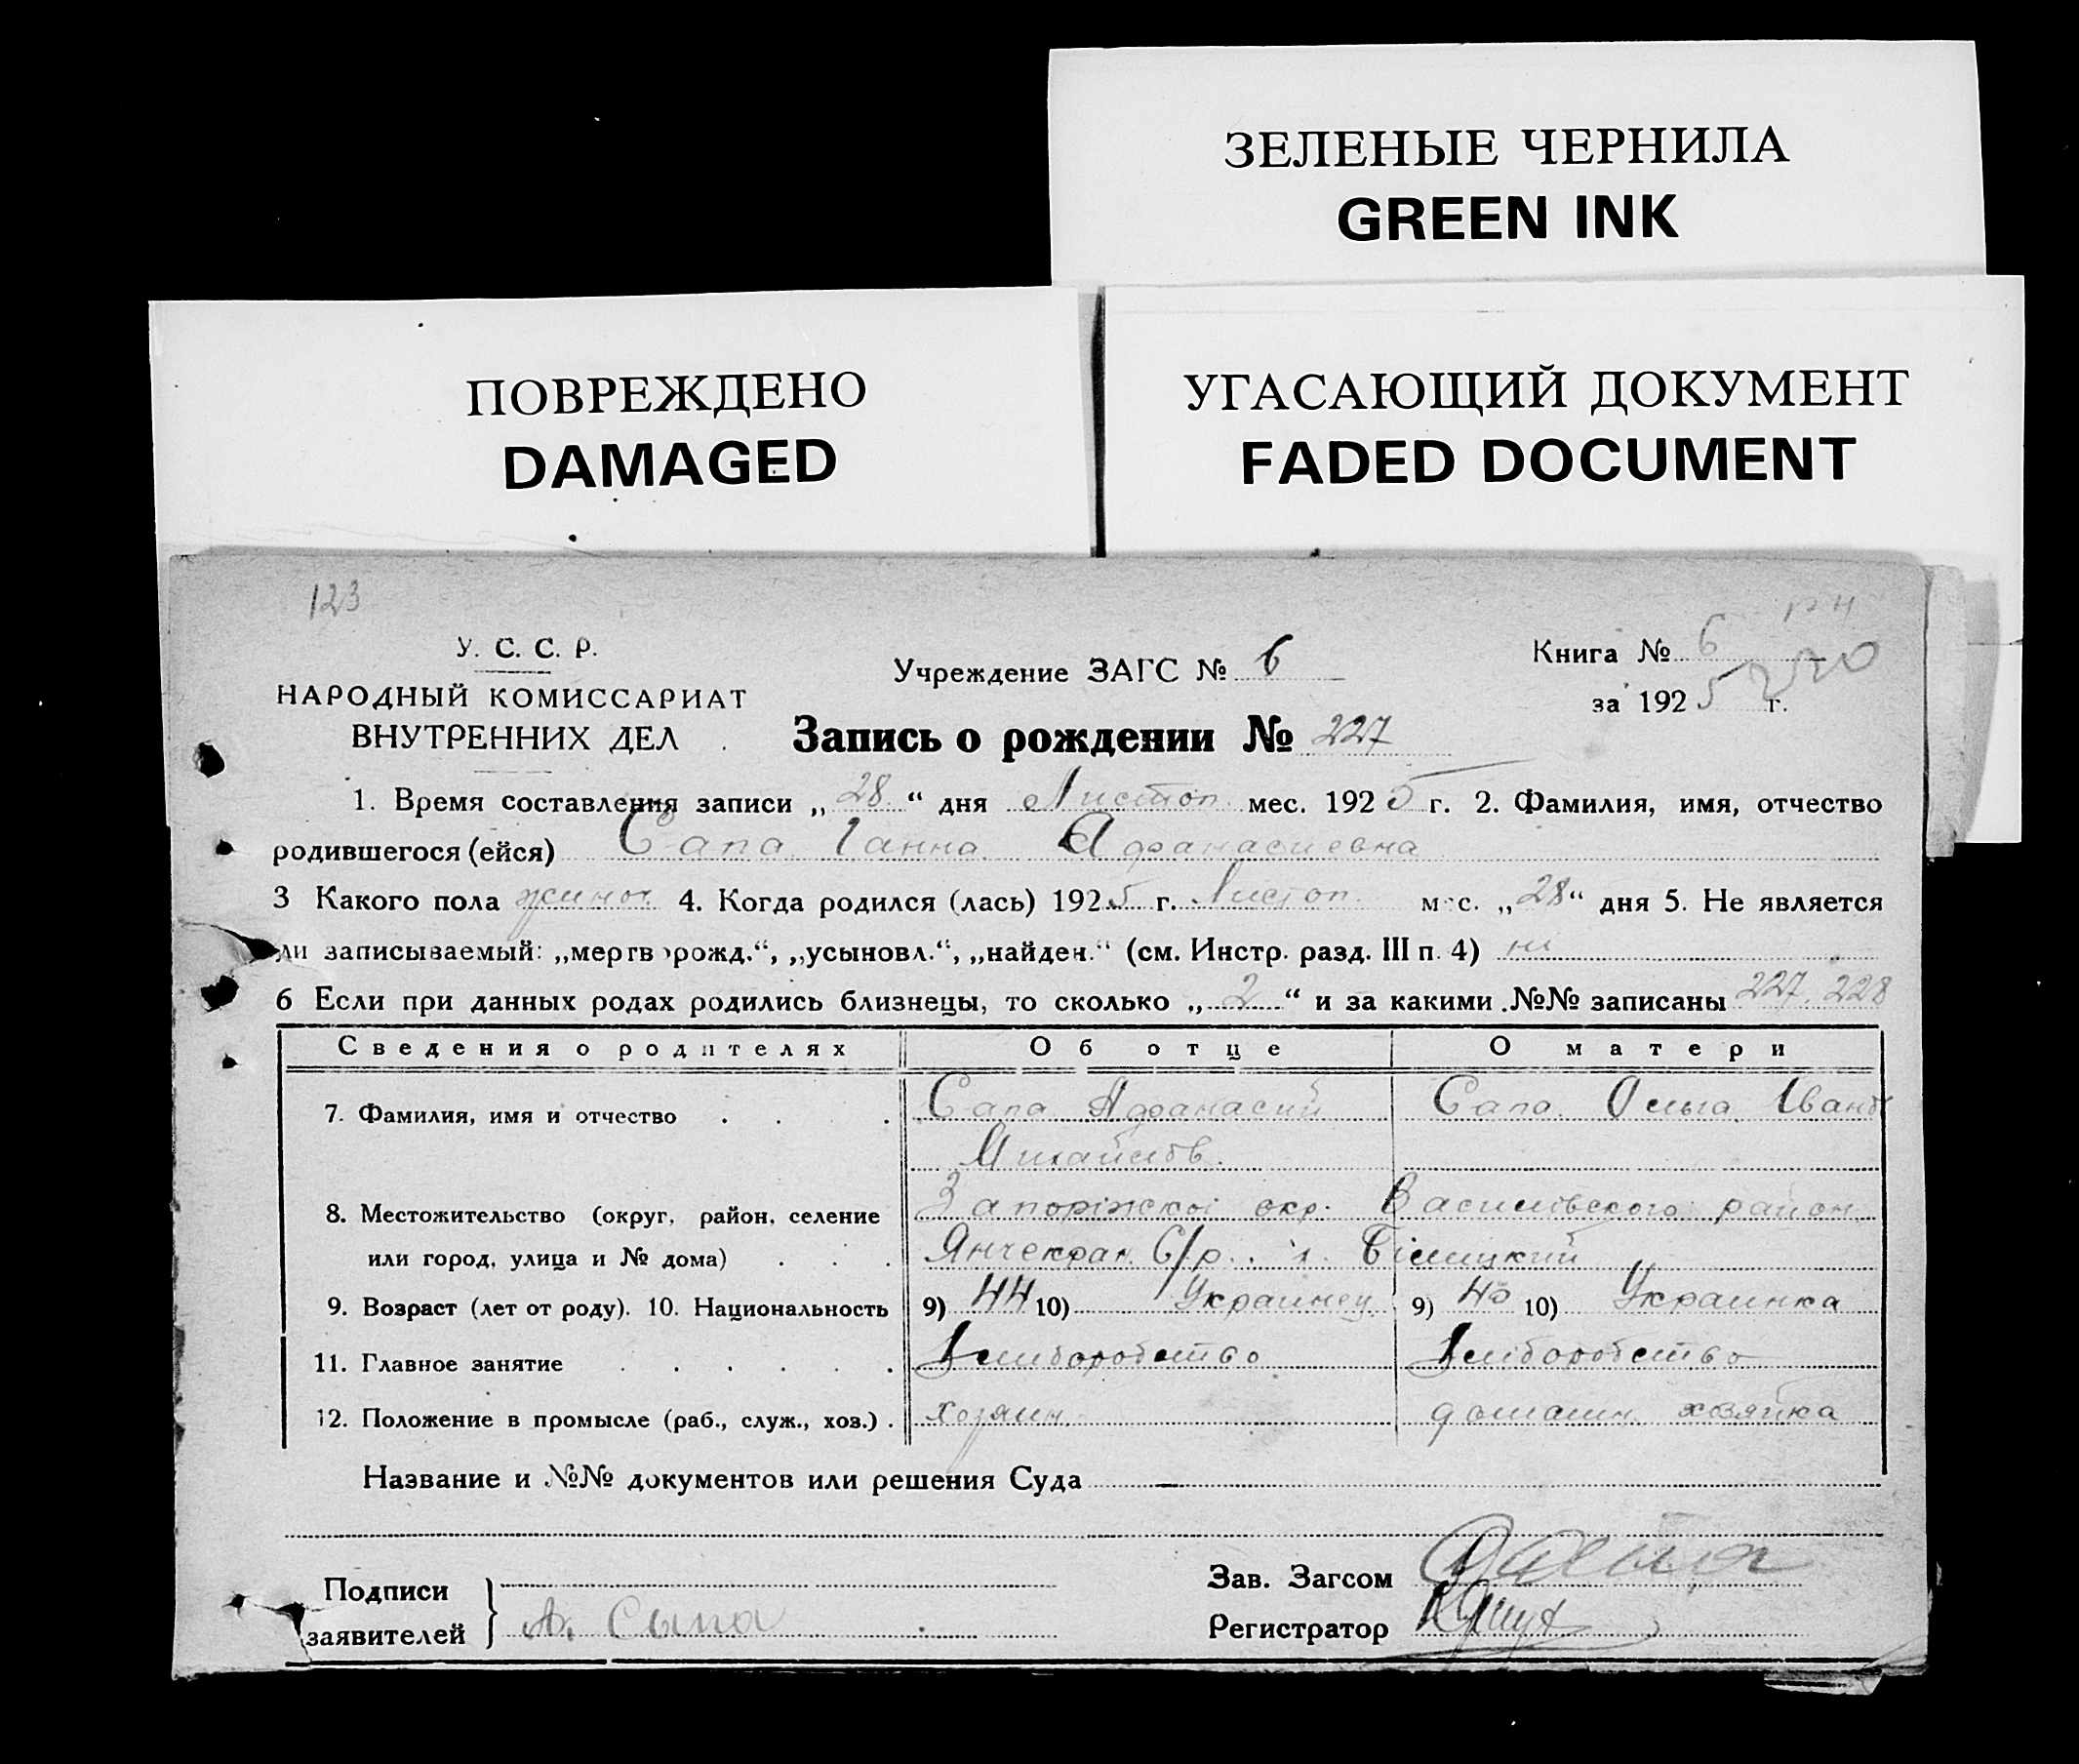 ЗЕЛЕНЫЕ ЧЕРНИЛА
GREEN INK
ПОВРЕЖДЕНО
DAMAGED
УГАСАЮЩИЙ ДОКУМЕНТ
FADED DOCUMENT
123
У. С. С. Р.
НАРОДНЫЙ КОМИССАРИАТ
ВНУТРЕННИХ ДЕЛ
Учреждение ЗАГС № 6
Книга № 6
220
за 1925 г.
Запись о рождении № 227
1. Время составления записи „28“ дня Листоп. мес. 1925 г. 2. Фамилия, имя, отчество
родившегося (ейся) Сапа Ганна Афанасиевна
3 Какого пола жиноч. 4. Когда родился (лась) 1925 г. Листоп. мес. „28“ дня 5. Не является
ли записываемый: „мертворожд.“, „усыновл.“, „найден.“ (см. Инстр. разд. III п. 4) ні
6 Если при данных родах родились близнецы, то сколько „2“ и за какими №№ записаны 227 228
Сведения о родителях Об отце О матери
7. Фамилия, имя и отчество . . . Сапа Афанасий Сапа Ольга Іванов
Михайлов.
8. Местожительство (округ, район, селение Запоріжскоі окр. Василівского район.
или город, улица и № дома) . . . Янчекрак. С/р. х. Біліцкий
9. Возраст (лет от роду). 10. Национальность 9) 44 10) Украинец 9) 40 10) Украинка
11. Главное занятие . . . . . Хлиборобство Хлиборобство
12. Положение в промысле (раб., служ., хоз.) . хозяин. домашн. хозяйка
Название и №№ документов или решения Суда —
Подписи
заявителей } А. Сыпа
Зав. Загсом
Регистратор